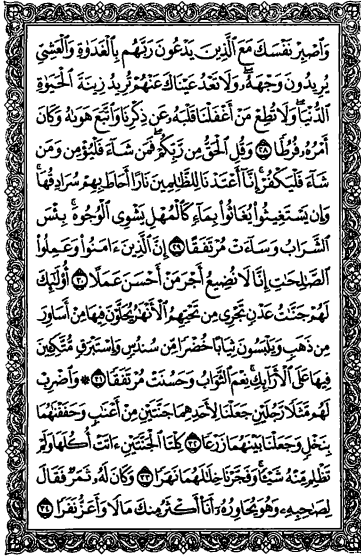 وَٱصۡبِرۡ نَفۡسَكَ مَعَ ٱلَّذِينَ يَدۡعُونَ رَبَّهُم بِٱلۡغَدَوٰةِ وَٱلۡعَشِيِّ
يُرِيدُونَ وَجۡهَهُۥۖ وَلَا تَعۡدُ عَيۡنَاكَ عَنۡهُمۡ تُرِيدُ زِينَةَ ٱلۡحَيَوٰةِ
ٱلدُّنۡيَاۖ وَلَا تُطِعۡ مَنۡ أَغۡفَلۡنَا قَلۡبَهُۥ عَن ذِكۡرِنَا وَٱتَّبَعَ هَوَىٰهُ وَكَانَ
أَمۡرُهُۥ فُرُطٗا ٢٨ وَقُلِ ٱلۡحَقُّ مِن رَّبِّكُمۡۖ فَمَن شَآءَ فَلۡيُؤۡمِن وَمَن
شَآءَ فَلۡيَكۡفُرۡۚ إِنَّآ أَعۡتَدۡنَا لِلظَّٰلِمِينَ نَارًا أَحَاطَ بِهِمۡ سُرَادِقُهَاۚ
وَإِن يَسۡتَغِيثُواْ يُغَاثُواْ بِمَآءٖ كَٱلۡمُهۡلِ يَشۡوِي ٱلۡوُجُوهَۚ بِئۡسَ
ٱلشَّرَابُ وَسَآءَتۡ مُرۡتَفَقًا ٢٩ إِنَّ ٱلَّذِينَ ءَامَنُواْ وَعَمِلُواْ
ٱلصَّٰلِحَٰتِ إِنَّا لَا نُضِيعُ أَجۡرَ مَنۡ أَحۡسَنَ عَمَلًا ٣٠ أُوْلَٰٓئِكَ
لَهُمۡ جَنَّٰتُ عَدۡنٖ تَجۡرِي مِن تَحۡتِهِمُ ٱلۡأَنۡهَٰرُ يُحَلَّوۡنَ فِيهَا مِنۡ أَسَاوِرَ
مِن ذَهَبٖ وَيَلۡبَسُونَ ثِيَابًا خُضۡرٗا مِّن سُندُسٖ وَإِسۡتَبۡرَقٖ مُّتَّكِـِٔينَ
فِيهَا عَلَى ٱلۡأَرَآئِكِۚ نِعۡمَ ٱلثَّوَابُ وَحَسُنَتۡ مُرۡتَفَقٗا ٣١ ۞ وَٱضۡرِبۡ
لَهُم مَّثَلٗا رَّجُلَيۡنِ جَعَلۡنَا لِأَحَدِهِمَا جَنَّتَيۡنِ مِنۡ أَعۡنَٰبٖ وَحَفَفۡنَٰهُمَا
بِنَخۡلٖ وَجَعَلۡنَا بَيۡنَهُمَا زَرۡعٗا ٣٢ كِلۡتَا ٱلۡجَنَّتَيۡنِ ءَاتَتۡ أُكُلَهَا وَلَمۡ
تَظۡلِم مِّنۡهُ شَيۡـٔٗاۚ وَفَجَّرۡنَا خِلَٰلَهُمَا نَهَرٗا ٣٣ وَكَانَ لَهُۥ ثَمَرٞ فَقَالَ
لِصَٰحِبِهِۦ وَهُوَ يُحَاوِرُهُۥٓ أَنَا۠ أَكۡثَرُ مِنكَ مَالٗا وَأَعَزُّ نَفَرٗا ٣٤